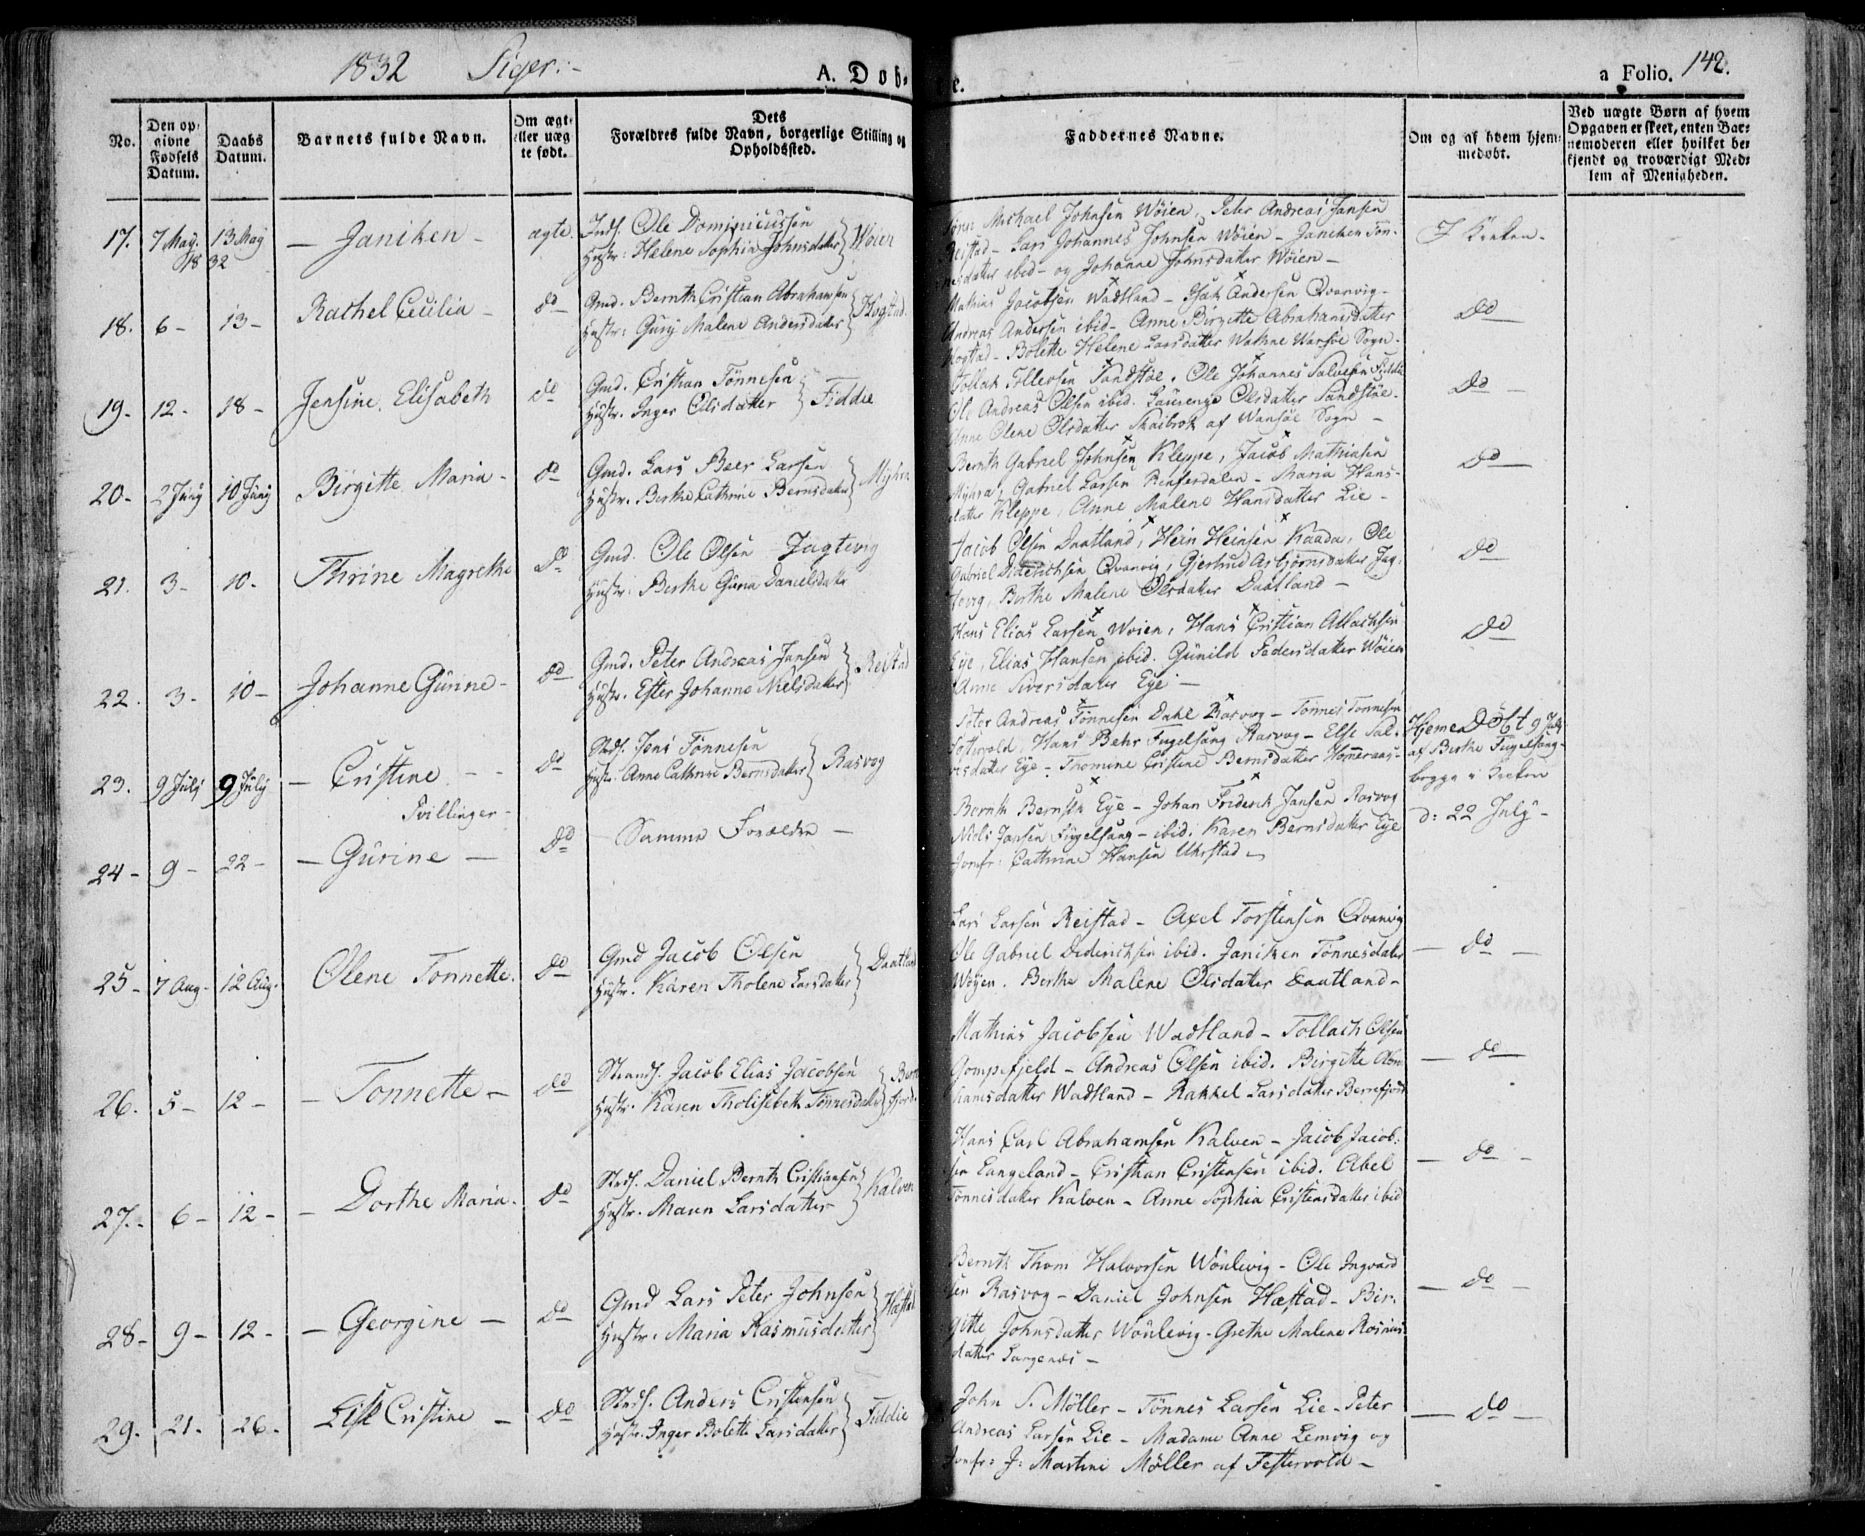 1832 Piger.-
A. Dob-
e.
a Folio. 142.
No.
Den op-
givne
Fødsels
Datum.
Daabs
Datum.
Barnets fulde Navn.
Om ægte
eller uæg-
te født.
Dets
Forældres fulde Navn, borgerlige Stilling og
Opholdssted.
Faddernes Navne.
Om og af hvem hjem-
medøbt.
Ved uægte Børn af hvem
Opgaven er skeet, enten Bar-
nemoderen eller hvilket be-
kjendt og troværdigt Med-
lem af Menigheden.
17. 7 May. 1832 13 May — Janiken — ægte
Inds. Ole Dominicussen
Hustr: Helene Sophia Johnsdatter } Wöien
Michael Johnsen Wöien, Peter Andreas Jansen
Reistad — Lars Johannes Johnsen Wöien — Janiken Tön-
nesdatter ibid — og Johanne Johnsdatter Wöien —
I Kirken.
18. 6 — 13 — Rachel Cecilia — do
Gmd. Bernth Cristian Abrahamsen
Hustr: Gurij Malene Andersdatter } Kogstad.
Mathias Jacobsen Wadtland — Isak Andersen Qvanvig —
Andreas Andersen ibid — Anne Birgitte Abrahamsdatter
Kogstad — Bolette Helene Larsdatter Wathne Wansøe Sogn.
do
19. 12. 18 — Jensine Elisabeth do
Gmd. Cristian Tönnesen
Hustr. Inger Olsdatter } Fiddie
Tollak Tollevsen Sandstøe. Ole Johannes Salvesen Fiddie
Ole Andreas Olsen ibid. Laurenze Olsdatter Sandstøe.
Anne Olene Olsdatter Skaibrok af Wansøe Sogn —
do
20 — 2 Juny 10 Juny Birgitte Maria — do
Gmd. Lars Beer Larsen
Hustr. Berthe Cathrine Bernsdatter } Myhre
Bernth Gabriel Johnsen Kleppe, Jacob Mathiasen
Myhre, Gabriel Larsen — Maria Hans-
datter Kleppe, Anne Malene Hansdatter Lie —
do
21. 3 — 10. Thrine Magrethe do
Gmd. Ole Olsen Jagtevig
Hustr: Berthe Guria Danielsdatter
Jacob Olsen Daatland, Hein Heinsen Kaada, Ole
Gabriel Didrichsen Qvanvig, Gjertrud Asbjörnsdatter Jag-
tevig, Berthe Malene Olsdatter Daatland —
do
22. 3 — 10 — Johanne Gurine — do
Gmd. Peter Andreas Jansen
Hustr. Ester Johanne Nielsdatter } Reistad
Hans Elias Larsen Woien, Hans Cristian Atlachsen
Eye, Elias Hansen ibid. Gunild Pedersdatter Wöien
Anne Siversdatter Eye —
do
23. 9 July 9 July — Cristine — do
Tvillinger —
Strds. Jens Tönnesen
Hustr. Anne Cathrine Bernsdatter } Rasvog
Peter Andreas Tönnesen Dahl Rasvog — Tönnes Tönnesen
Hans Behr Fugelsang Rasvog — Else Sal-
vesdatter Eye — Thomine Cristine Bernsdatter Hommeraas —
Hjeme Döbt 9 July
af Berthe Fugelsang
begge i Kirken
d: 22 July —
24 — 9 — 22 — — Gurine — do
Samme Forældre —
Bernth Bernsen Eye — Johan Friderik Jansen Rasvog
Niels Jansen Fugelsang — ibid. Karen Bernsdatter Eye
Jomfr: Cathrine Hansen Uhrstad —
25 — 7 Aug. 12 Aug. Olene Tonnette. do
Gmd Jacob Olsen
Hustr. Karen Tholene Larsdatter } Daatland
Lars Larsen Reistad — Axel Torstensen Qvanvig
Ole Gabriel Dedericksen ibid. Janiken Tönnesdatter
Wöyen. Berthe Malene Olsdatter Daatland —
— do —
26. 5 — 12 — — Tonnette — do
Strands. Jacob Elias Jacobsen
Hustr. Karen Tholisebeth Tönnesdatter
Mathias Jacobsen Wadtland — Tollach Olsen
Gompefjeld — Andreas Olsen ibid. Birgitte Abra-
hamsdatter Wadtland — Rakkel Larsdatter Berrefjord
— do —
27. 6 — 12 — — Dorthe Maria. do
Strds. Daniel Bernth Cristiansen
Hustr. Maren Larsdatter } Kalven
Hans Carl Abrahamsen Kalven — Jacob Jacob-
sen Langeland — Cristian Cristensen ibid. Abel
Tönnesdatter Kalven — Anne Sophia Cristensdatter ibid
— do —
28 — 9 — 12 — — Georgine — do
Gmd Lars Peter Johnsen
Hustr. Maria Rasmusdatter } Hæstad
Bernth Thom Halvorsen Woulevig — Ole Ingvard-
sen Rasvog — Daniel Johnsen Hæstad — Bir-
gitte Johnsdatter Woulevig. Grethe Malene Rasmus-
datter Langenæs —
— do —
29. 21. 26. Lise Cristine — do
Strds. Anders Cristensen
Hustr. Inger Bolette Larsdatter } Fiddie
John S. Möller — Tönnes Larsen Lie — Peter
Andreas Larsen Lie — Madame Anne Lemvig og
Jomfr: J: Martine Möller af Festervold —
— do —